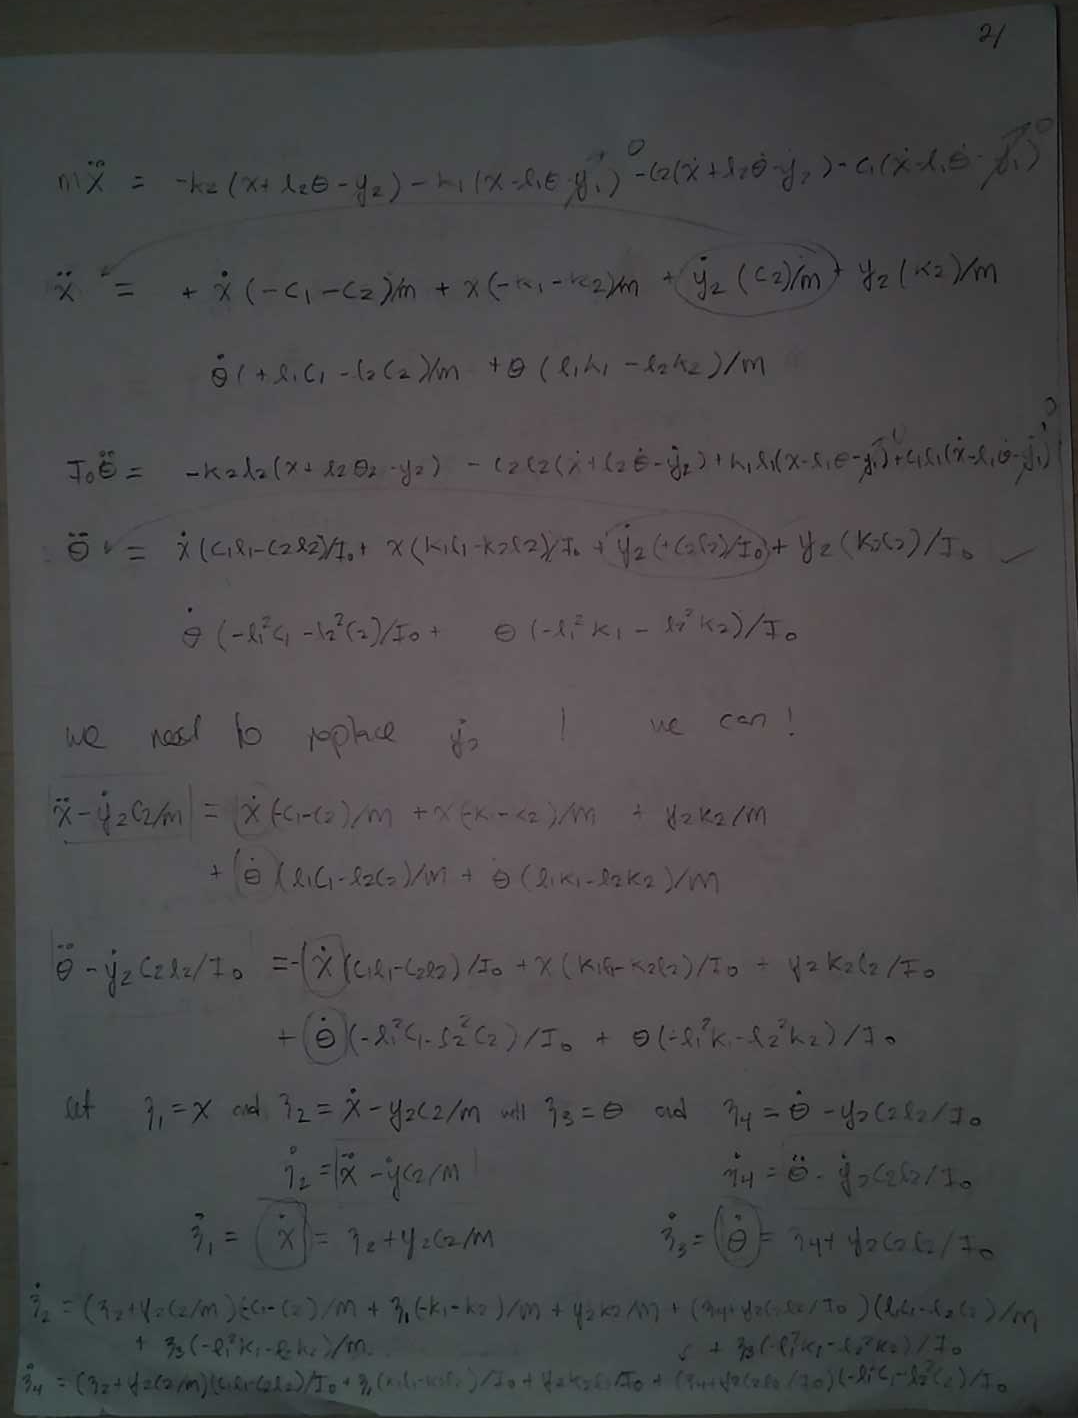 21
mẍ = -k2(x+l2θ-y2)-k1(x-l1θ-y1)^0-c2(ẋ+l2θ̇-ẏ2)-c1(ẋ-l1θ̇-ẏ1)^0
ẍ = +ẋ(-c1-c2)/m + x(-k1-k2)/m + ẏ2(c2)/m + y2(k2)/m
θ̇(+l1c1-l2c2)/m +θ(l1k1-l2k2)/m
I0θ̈ = -k2l2(x+l2θ2-y2) - c2l2(ẋ+l2θ̇-ẏ2)+k1l1(x-l1θ-y1)^0+c1l1(ẋ-l1θ̇-ẏ1)^0
θ̈ = ẋ(c1l1-c2l2)/I0+ x(k1l1-k2l2)/I0 + ẏ2(+c2l2)/I0+ y2(k2l2)/I0 ✓
θ̇(-l1²c1-l2²c2)/I0+ θ(-l1²k1-l2²k2)/I0
we need to replace ẏ2 ! we can!
ẍ-ẏ2c2/m = ẋ(-c1-c2)/m +x(-k1-k2)/m + y2k2/m
+ θ̇(l1c1-l2c2)/m + θ(l1k1-l2k2)/m
θ̈-ẏ2c2l2/I0 =-ẋ(c1l1-c2l2)/I0+x(k1l1-k2l2)/I0 + y2k2l2/I0
+ θ̇(-l1²c1-l2²c2)/I0 + θ(-l1²k1-l2²k2)/I0
let z1=x and z2=ẋ-y2c2/m will z3=θ and z4=θ̇-y2c2l2/I0
ż2=ẍ-ẏc2/m ż4=θ̈-ẏ2c2l2/I0
ż1=ẋ=z2+y2c2/m ż3=θ̇=z4+y2c2l2/I0
ż2=(z2+y2c2/m)(-c1-c2)/m+z1(-k1-k2)/m+y2k2/m+(z4+y2c2l2/I0)(l1c1-l2c2)/m
+ z3(-l1²k1-l2k2)/m + z3(-l1²k1-l2²k2)/I0
ż4=(z2+y2c2/m)(c1l1-c2l2)/I0+z1(k1l1-k2l2)/I0+y2k2l2/I0+(z4+y2c2l2/I0)(-l1²c1-l2²c2)/I0